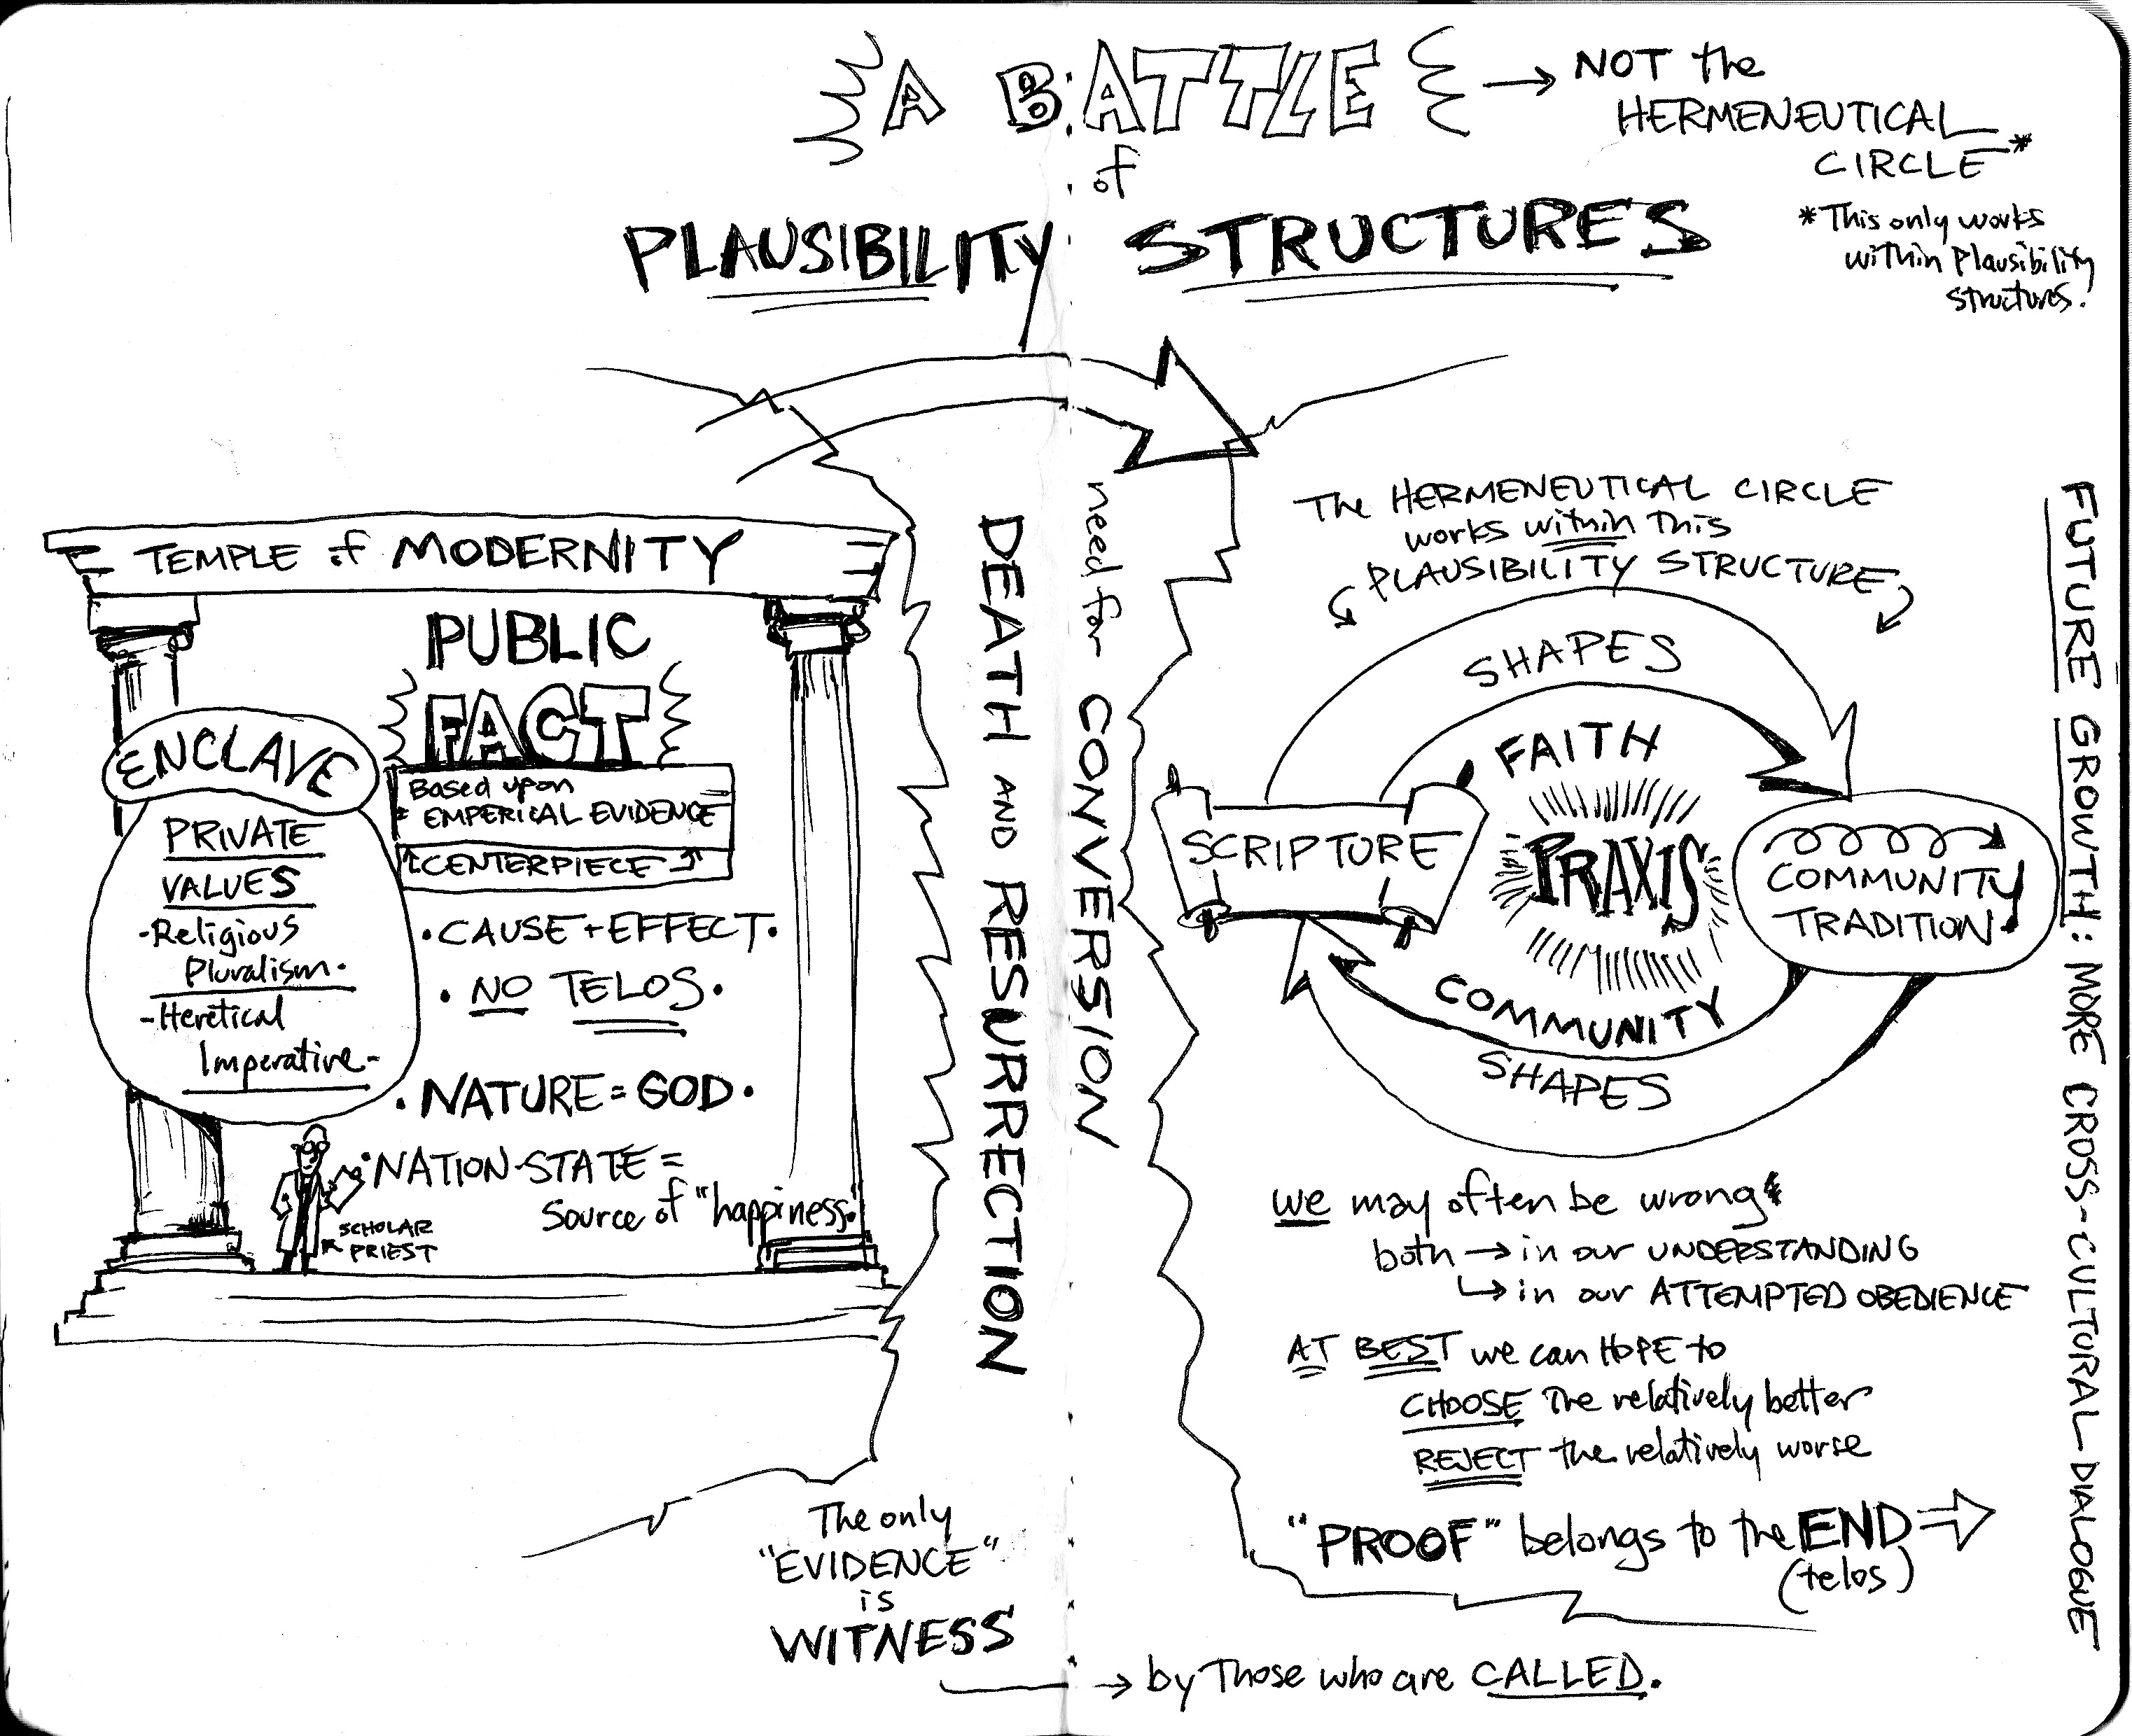 A BATTLE → NOT the
HERMENEUTICAL
CIRCLE*
of
PLAUSIBILITY STRUCTURES
*This only works
within Plausibility
structures.
TEMPLE of MODERNITY
PUBLIC
FACT
Based upon
EMPERICAL EVIDENCE
↑CENTERPIECE↑
• CAUSE + EFFECT •
• NO TELOS •
• NATURE = GOD •
• NATION-STATE =
Source of "happiness."
ENCLAVE
PRIVATE
VALUES
- Religious
Pluralism -
- Heretical
Imperative -
SCHOLAR
PRIEST
DEATH AND RESURRECTION
need for CONVERSION
The only
"EVIDENCE"
is
WITNESS
→ by Those who are CALLED.
The HERMENEUTICAL CIRCLE
works within this
PLAUSIBILITY STRUCTURE
SHAPES
FAITH
SCRIPTURE
PRAXIS
COMMUNITY
TRADITION
COMMUNITY
SHAPES
we may often be wrong
both → in our UNDERSTANDING
↳ in our ATTEMPTED OBEDIENCE
AT BEST we can HOPE to
CHOOSE The relatively better
REJECT the relatively worse
"PROOF" belongs to the END ⇒
(telos)
FUTURE GROWTH: MORE CROSS-CULTURAL DIALOGUE